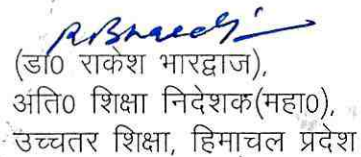 (डॉ0 राकेश भारद्वाज),
अति0 शिक्षा निदेशक(महा0),
उच्चतर शिक्षा, हिमाचल प्रदेश